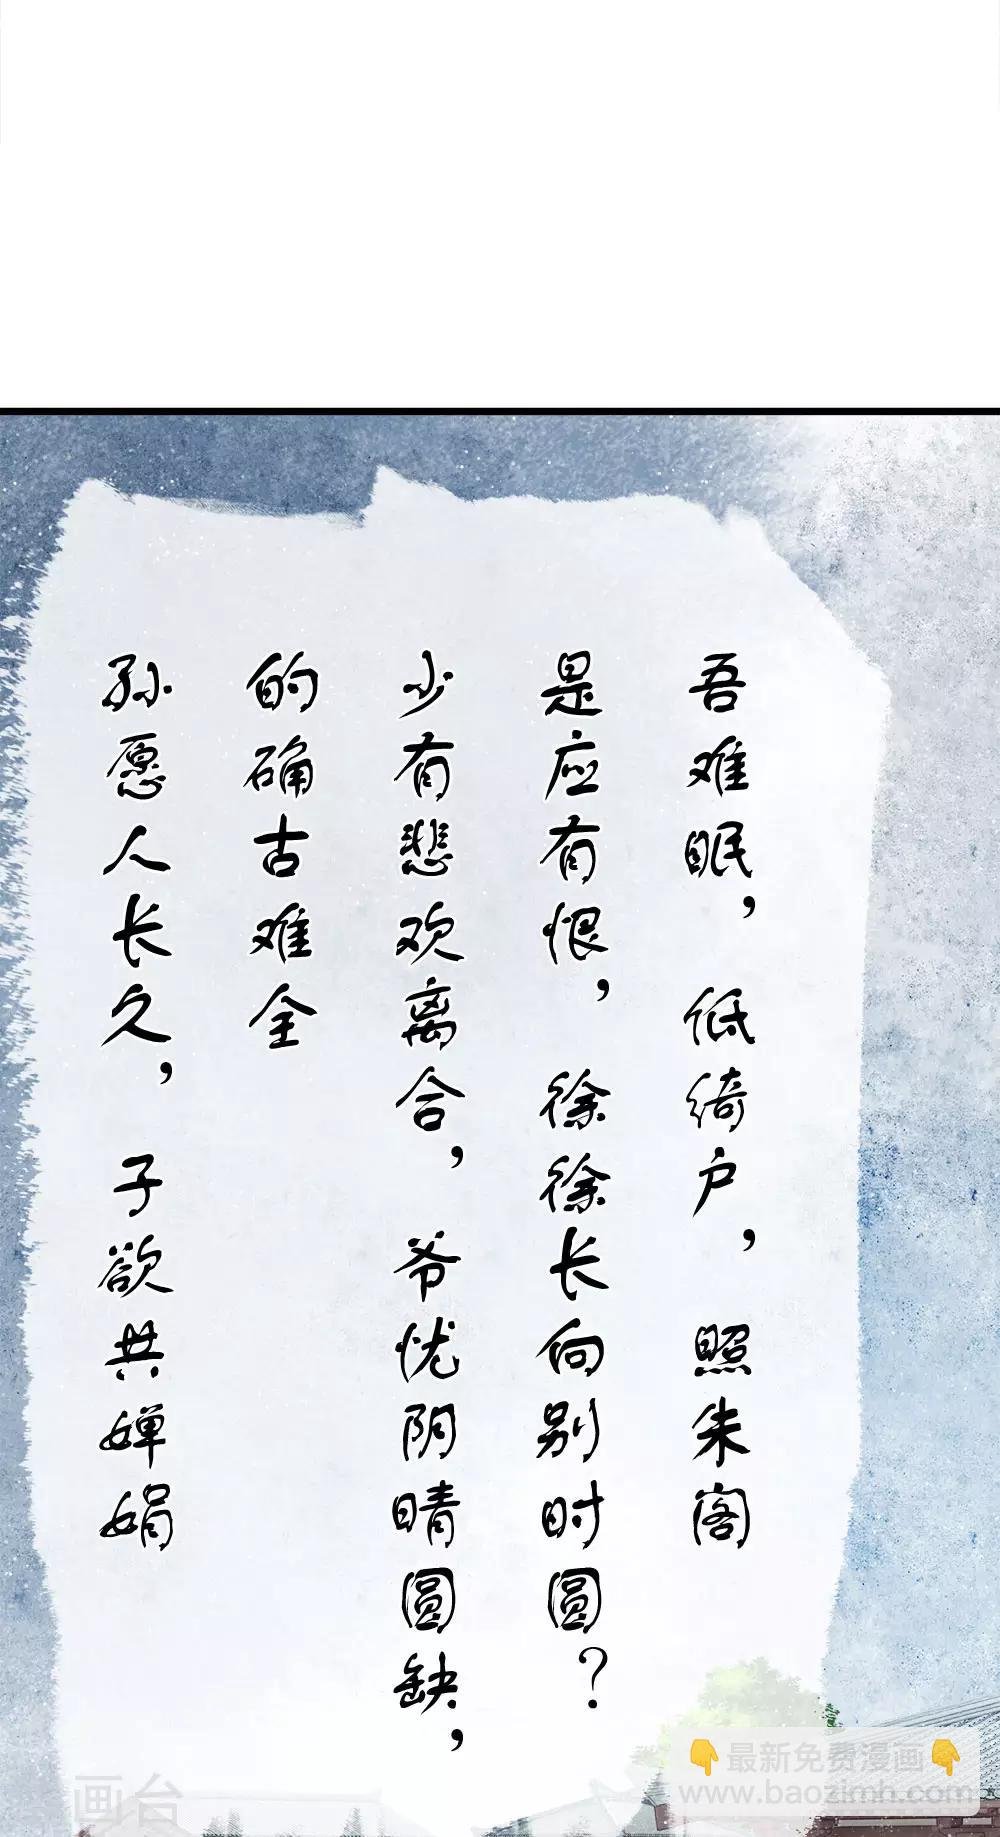 吾难眠，低绮户，照朱阁
是应有恨，徐徐长向别时圆？
少有悲欢离合，爷忧阴晴圆缺，
的确古难全
孙愿人长久，子欲共婵娟
最新免费漫画
www.baozimh.com
画台